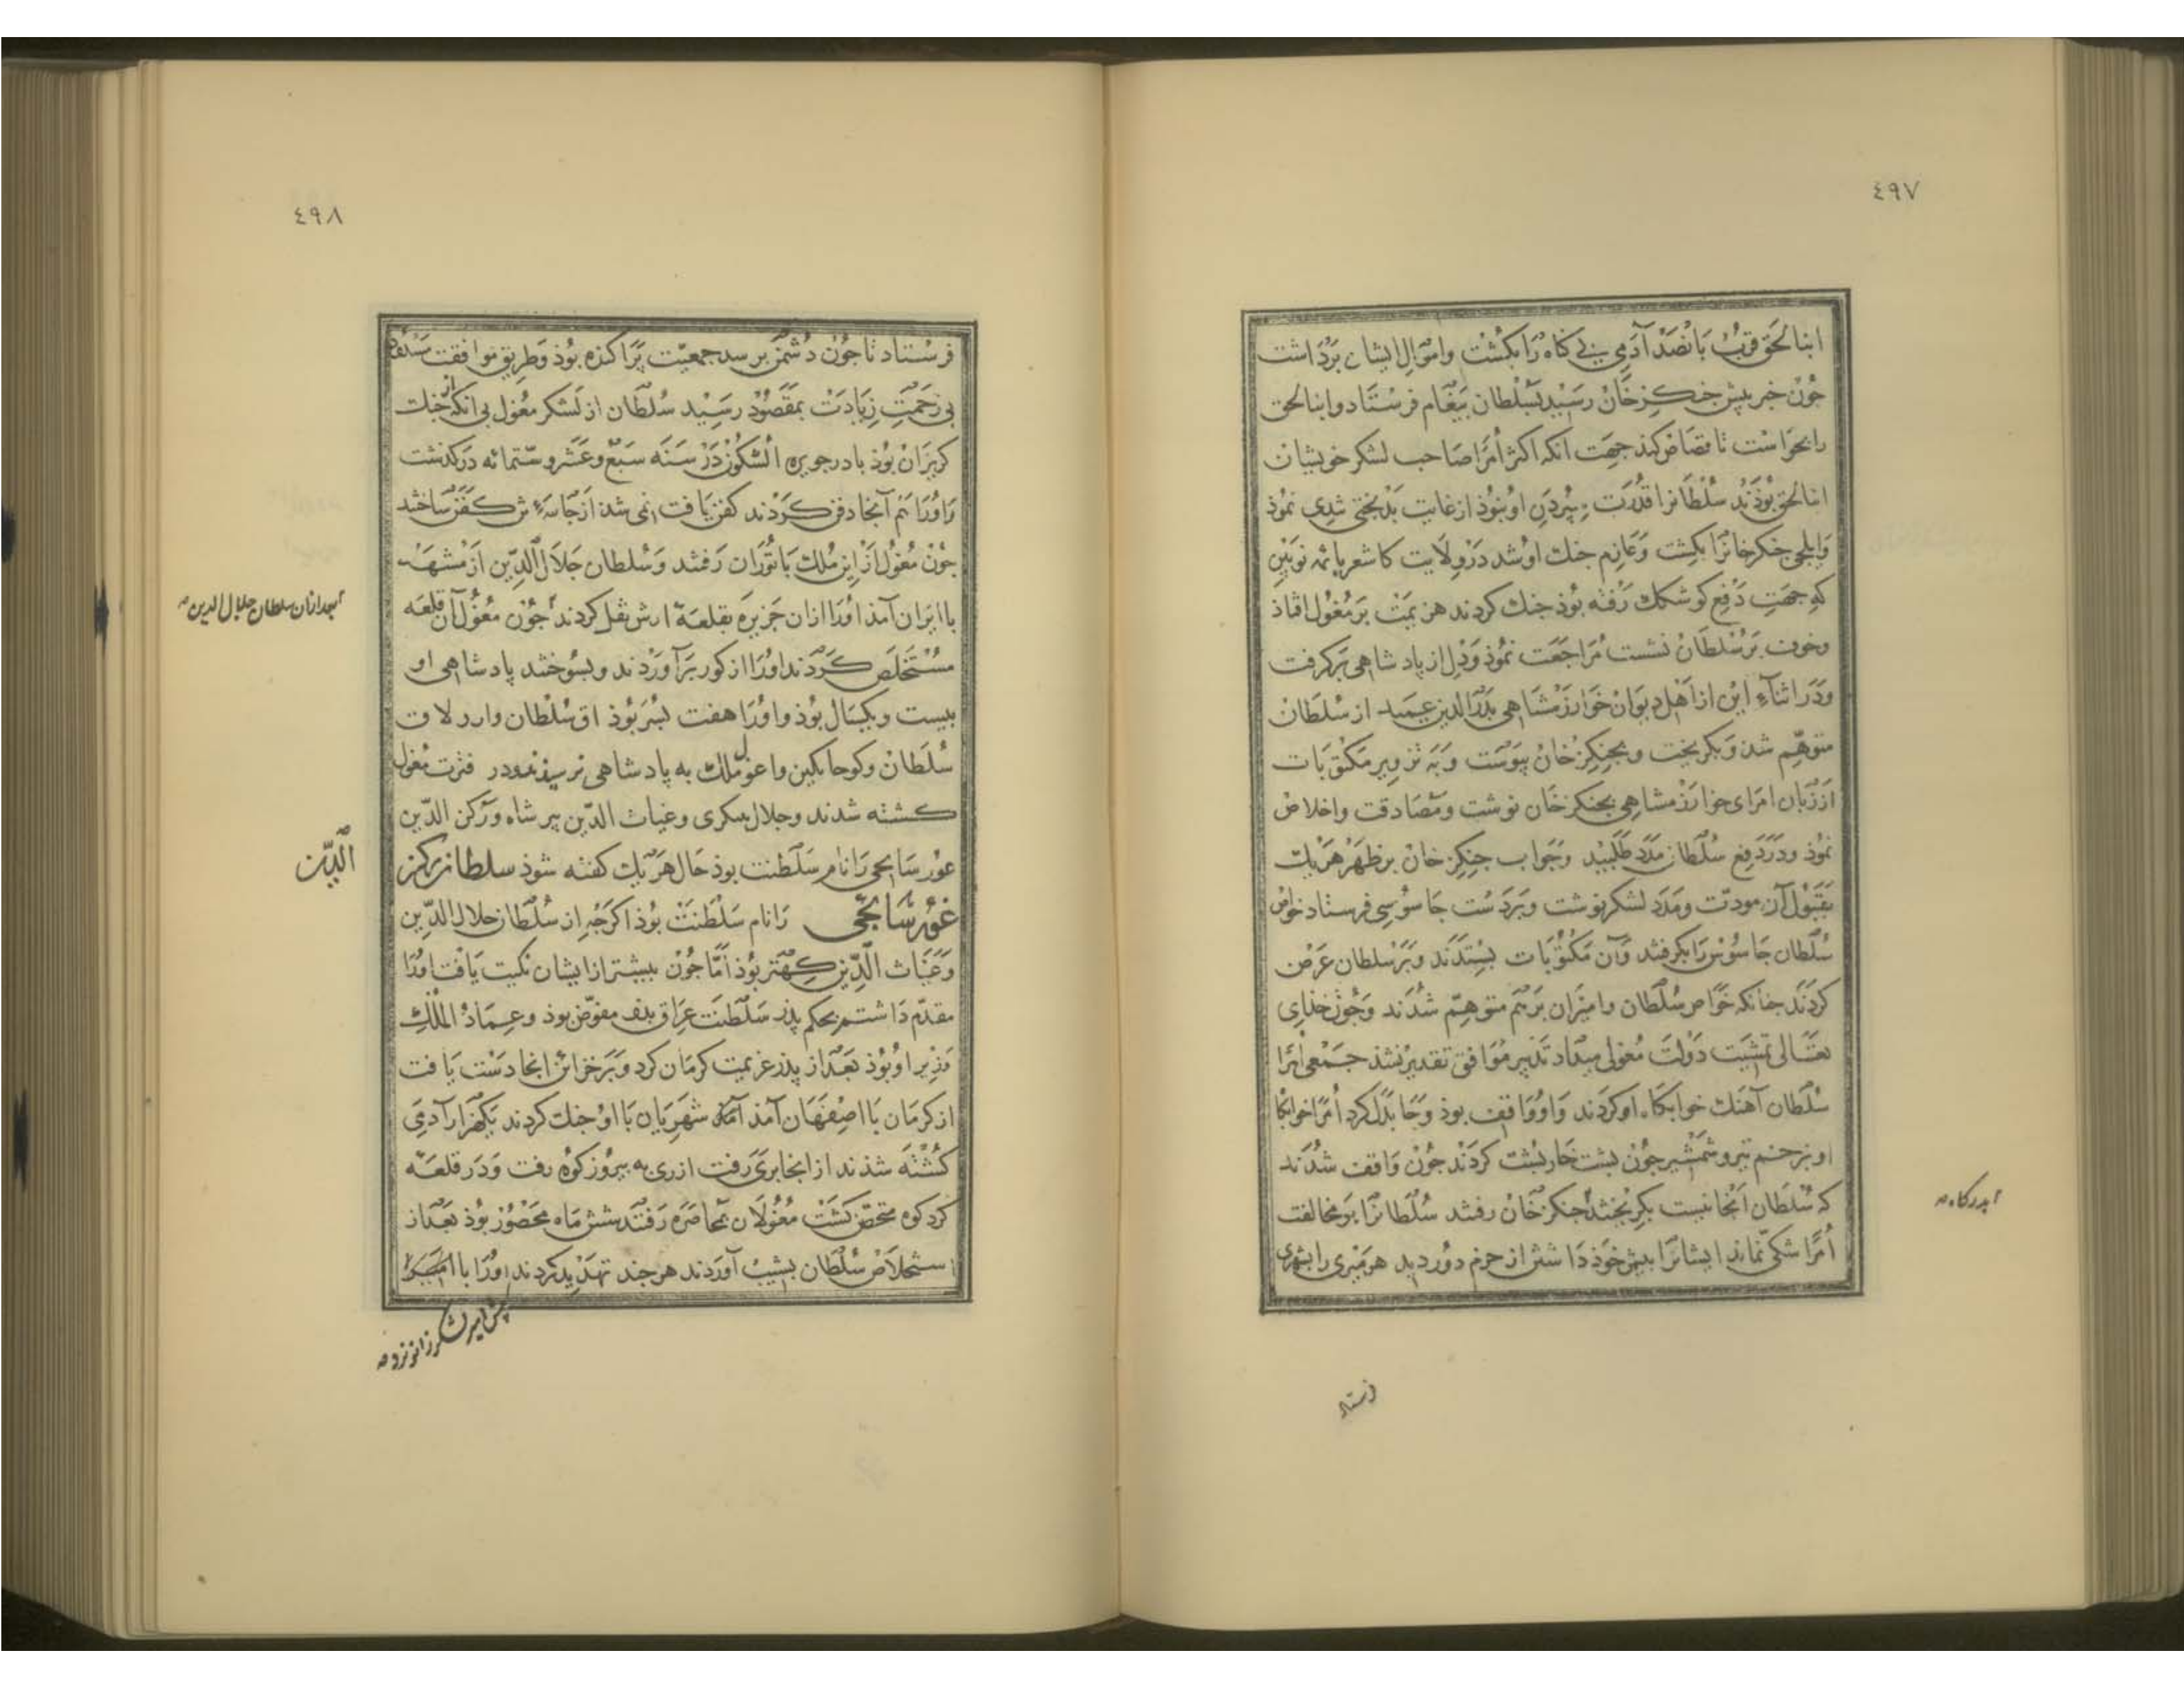 ٤٩٧
اینالحق قرب بانصد آدمی بی کناه را بکشت واموال ایشان برداشت
جون خبر بیش جنکزخان رسید بسلطان بیغام فرستاد واینالحق
رابخواست تا قصاص کند جهت انکه اکثر أمرا صاحب لشکر خویشان
اینالحق بوذند سلطانرا قدرت سپردن او نبوذ ازغایت بدبختی تندی نموذ
وایلجی جنکزخانرا بکشت وعازم جنك او شد درولایت کاشغر با نوبین
که جهت دفع کوشلك رفته بوذ جنك کردند هزیمت بر مغول افتاذ
وخوف بر سلطان نشست مراجعت نموذ ودل از پادشاهی برکرفت
ودر اثناء این از اهل دیوان خوارزمشاهی بدرالدین عمید از سلطان
متوهّم شد وبکریخت وبجنکزخان پیوست وبه تزویر مکتوبات
اززبان امرای خوارزمشاهی بجنکزخان نوشت ومصادقت واخلاص
نموذ ودردفع سلطان مدد طلبید وجواب جنکزخان برظهر هریك
بقبول آن مودت ومدد لشکر نوشت وبر دست جاسوسی فرستاد خواص
سلطان جاسوس را بکرفتند وآن مکتوبات بستدند وبر سلطان عرض
کردند جنانکه خواص سلطان وامیران برهم متوهّم شدند وجون خذای
تعالی تمشیت دولت مغول میداد تدبیر موافق تقدیر نشذ جمعی أمرا
سلطان آهنك خوابکاه او کردند واو واقف بوذ وجا بدل کرد أمرا خوابکا
او بزخم تیر وشمشیر جون بشت خاربشت کردند جون واقف شدند
که سلطان آنجا نیست بکریختند بجنکزخان رفتند سلطانرا بر مخالفت
أمرا شکی نماند ایشانرا بیش خوذ داشتن از حزم دور دید هر میری را بشهری
بدرکاه صه
فرستاد
٤٩٨
فرستاد تا جون دشمن برسد جمعیت پراکنده بوذ وطریق موافقت
بی زحمت زیادت بمقصود رسید سلطان از لشکر مغول بی انکه از جنك
کریزان بوذ تا در جزیره آبسکون در سنه سبع وعشر وستمائه درکذشت
واورا هم آنجا دفن کردند کفن یافت نمی شد از جامه‌ٔ ش کفن ساختند
جون مغول از این ملك با توران رفتند وسلطان جلال الدین از
با ایران آمد اورا ازان جزیره بقلعه ارش نقل کردند جون مغول آن قلعه
مستخلص کردند اورا از کور برآوردند وبسوختند پادشاهی او
بیست ویکسال بوذ واورا هفت بسر بوذ اق سلطان وارزلاق
سلطان وکوجایکین واغول ملك به پادشاهی نرسیذند ودر فترت مغول
کشته شدند وجلال منکبری وغیاث الدین پیرشاه ورکن الدین
غور سایجی را نام سلطنت بوذ حال هریك کفته شوذ سلطان رکن
الدین
غور سایجی رانام سلطنت بوذ اکرجه از سلطان جلال الدین
وغیاث الدین کهتر بوذ أما جون بیشتر از ایشان نکبت یافت اورا
مقدم داشتم بحکم پذر سلطنت عراق بذو مفوّض بوذ وعماد الملك
وزیر او بوذ بعد از پذر عزیمت کرمان کرد وبر خزائن انجا دست یافت
از کرمان با اصفهان آمذ آنکه شهریان با او جنك کردند یکهزار آدمی
کشته شذند از انجا بری رفت از ری به بیروزکوه رفت ودر قلعه
کردکوه متحصن کشت مغولان بمحاصره رفتند شش ماه محصور بوذ بعد از
استخلاص سلطان بشیب آوردند هرجند تهدید کردند اورا
بعد ازان سلطان جلال الدین صه
پیش امیر لشکر زانو نزد صه